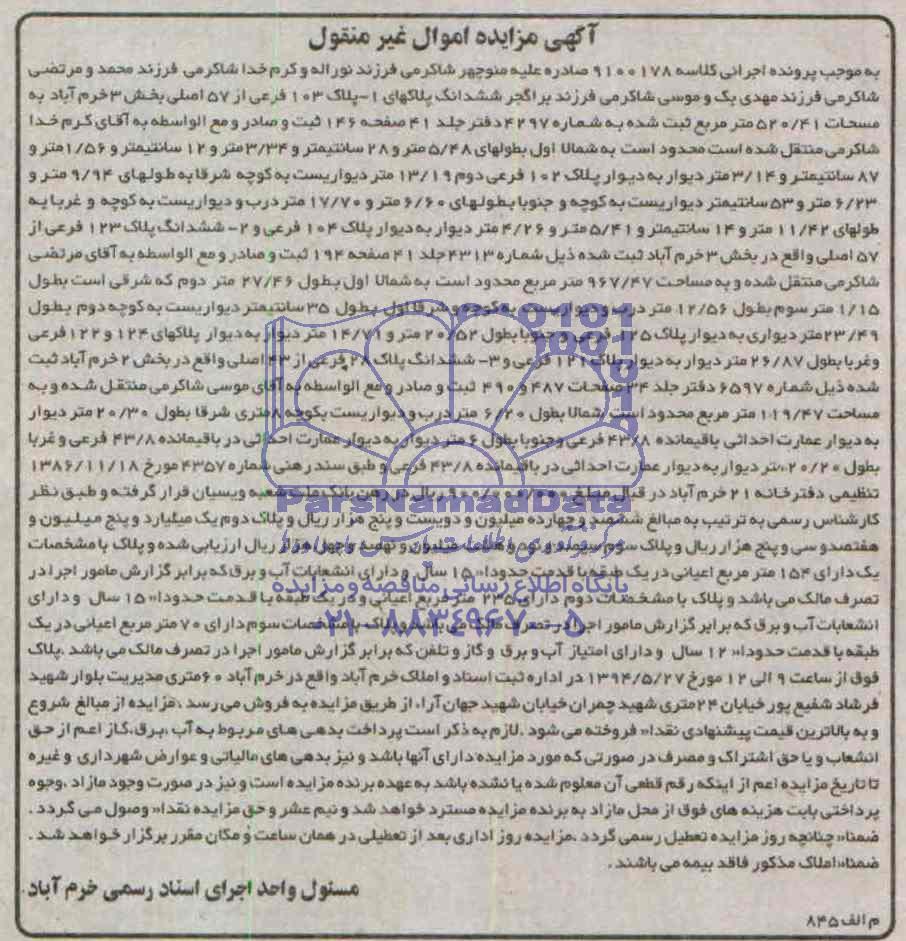 آگهی مزایده اموال غیر منقول
به موجب پرونده اجرائی کلاسه ۹۱۰۰۱۷۸ صادره علیه منوچهر شاکرمی فرزند نوراله و کرم خدا شاکرمی فرزند محمد و مرتضی
شاکرمی فرزند مهدی بک و موسی شاکرمی فرزند براگجر ششدانگ پلاکهای ۱-پلاک ۱۰۳ فرعی از ۵۷ اصلی بخش ۳خرم آباد به
مسحات ۵۲۰/۴۱ متر مربع ثبت شده به شماره ۴۲۹۷ دفتر جلد ۴۱ صفحه ۱۴۶ ثبت و صادر و مع الواسطه به آقای کرم خدا
شاکرمی منتقل شده است محدود است به شمالا اول بطولهای ۵/۴۸ متر و ۲۸ سانتیمتر و ۳/۳۴ متر و ۱۲ سانتیمتر و ۱/۵۶ متر و
۸۷ سانتیمتر و ۳/۱۴ متر دیوار به دیوار پلاک ۱۰۲ فرعی دوم ۱۳/۱۹ متر دیواریست به کوچه شرقا به طولهای ۹/۹۴ متر و
۶/۲۳ متر و ۵۳ سانتیمتر دیواریست به کوچه و جنوبا بطولهای ۶/۶۰ متر و ۱۷/۷۰ متر درب و دیواریست به کوچه و غربا به
طولهای ۱۱/۴۲ متر و ۱۴ سانتیمتر و ۵/۴۱ متر و ۴/۲۶ متر دیوار به دیوار پلاک ۱۰۴ فرعی و ۲- ششدانگ پلاک ۱۲۳ فرعی از
۵۷ اصلی واقع در بخش ۳ خرم آباد ثبت شده ذیل شماره ۴۳۱۳ جلد ۴۱ صفحه ۱۹۴ ثبت و صادر و مع الواسطه به آقای مرتضی
شاکرمی منتقل شده و به مساحت ۹۶۷/۴۷ متر مربع محدود است به شمالا اول بطول ۲۷/۴۶ متر دوم که شرقی است بطول
۱/۱۵ متر سوم بطول ۱۲/۵۶ متر درب و دیواریست به کوچه و شرقا اول بطول ۳۵ سانتیمتر دیواریست به کوچه دوم بطول
۲۳/۴۹ متر دیواری به دیوار پلاک ۱۲۵ فرعی و جنوبا بطول ۲۰/۵۲ متر و ۱۴/۷۱ متر دیوار به دیوار پلاکهای ۱۲۴ و ۱۲۲ فرعی
و غربا بطول ۲۶/۸۷ متر دیوار به دیوار پلاک ۱۲۱ فرعی و ۳- ششدانگ پلاک ۲۸ فرعی از ۴۳ اصلی واقع در بخش ۲ خرم آباد ثبت
شده ذیل شماره ۶۵۹۷ دفتر جلد ۳۴ صفحات ۴۸۷ و ۴۹۰ ثبت و صادر و مع الواسطه به آقای موسی شاکرمی منتقل شده و به
مساحت ۱۱۹/۴۷ متر مربع محدود است شمالا بطول ۶/۲۰ متر درب و دیواریست بکوچه ۸متری شرقا بطول ۲۰/۳۰ متر دیوار
به دیوار عمارت احداثی باقیمانده ۴۳/۸ فرعی و جنوبا بطول ۶ متر دیوار به دیوار عمارت احداثی در باقیمانده ۴۳/۸ فرعی و غربا
بطول ۲۰/۲۰ متر دیوار به دیوار عمارت احداثی در باقیمانده ۴۳/۸ فرعی و طبق سند رهنی شماره ۴۳۵۷ مورخ ۱۳۸۶/۱۱/۱۸
تنظیمی دفترخانه ۲۱ خرم آباد در قبال مبلغ ۹۰۰/۰۰۰/۰۰۰ ریال در رهن بانک ملت شعبه ویسیان قرار گرفته و طبق نظر
کارشناس رسمی به ترتیب به مبالغ ششصد و چهارده میلیون و دویست و پنج هزار ریال و پلاک دوم یک میلیارد و پنج میلیون و
هفتصدو سی و پنج هزار ریال و پلاک سوم سیصد و نود و هشت میلیون و نهصد و چهل هزار ریال ارزیابی شده و پلاک با مشخصات
یک دارای ۱۵۴ متر مربع اعیانی در یک طبقه با قدمت حدودا« ۱۵ سال و دارای انشعابات آب و برق که برابر گزارش مامور اجرا در
تصرف مالک می باشد و پلاک با مشخصات دوم دارای ۲۳۵ متر مربع اعیانی و در یک طبقه با قدمت حدودا« ۱۵ سال و دارای
انشعابات آب و برق که برابر گزارش مامور اجرا در تصرف مالک می باشد و پلاک با مشخصات سوم دارای ۷۰ متر مربع اعیانی در یک
طبقه با قدمت حدودا« ۱۲ سال و دارای امتیاز آب و برق و گاز و تلفن که برابر گزارش مامور اجرا در تصرف مالک می باشد .پلاک
فوق از ساعت ۹ الی ۱۲ مورخ ۱۳۹۴/۵/۲۷ در اداره ثبت اسناد و املاک خرم آباد واقع در خرم آباد ۶۰متری مدیریت بلوار شهید
فرشاد شفیع پور خیابان ۲۴متری شهید چمران خیابان شهید جهان آراء از طریق مزایده به فروش می رسد .مزایده از مبالغ شروع
و به بالاترین قیمت پیشنهادی نقدا« فروخته می شود .لازم به ذکر است پرداخت بدهی های مربوط به آب ،برق،گاز اعم از حق
انشعاب و یا حق اشتراک و مصرف در صورتی که مورد مزایده دارای آنها باشد و نیز بدهی های مالیاتی و عوارض شهرداری و غیره
تا تاریخ مزایده اعم از اینکه رقم قطعی آن معلوم شده یا نشده باشد به عهده برنده مزایده است و نیز در صورت وجود مازاد ،وجوه
پرداختی بابت هزینه های فوق از محل مازاد به برنده مزایده مسترد خواهد شد و نیم عشر و حق مزایده نقدا« وصول می گردد .
ضمنا« چنانچه روز مزایده تعطیل رسمی گردد .مزایده روز اداری بعد از تعطیلی در همان ساعت و مکان مقرر برگزار خواهد شد .
ضمنا«املاک مذکور فاقد بیمه می باشند .
مسئول واحد اجرای اسناد رسمی خرم آباد
م الف ۸۴۵
ParsNamadData
پایگاه اطلاع رسانی مناقصه و مزایده
۰۲۱-۸۸۳۴۹۶۷۰-۵